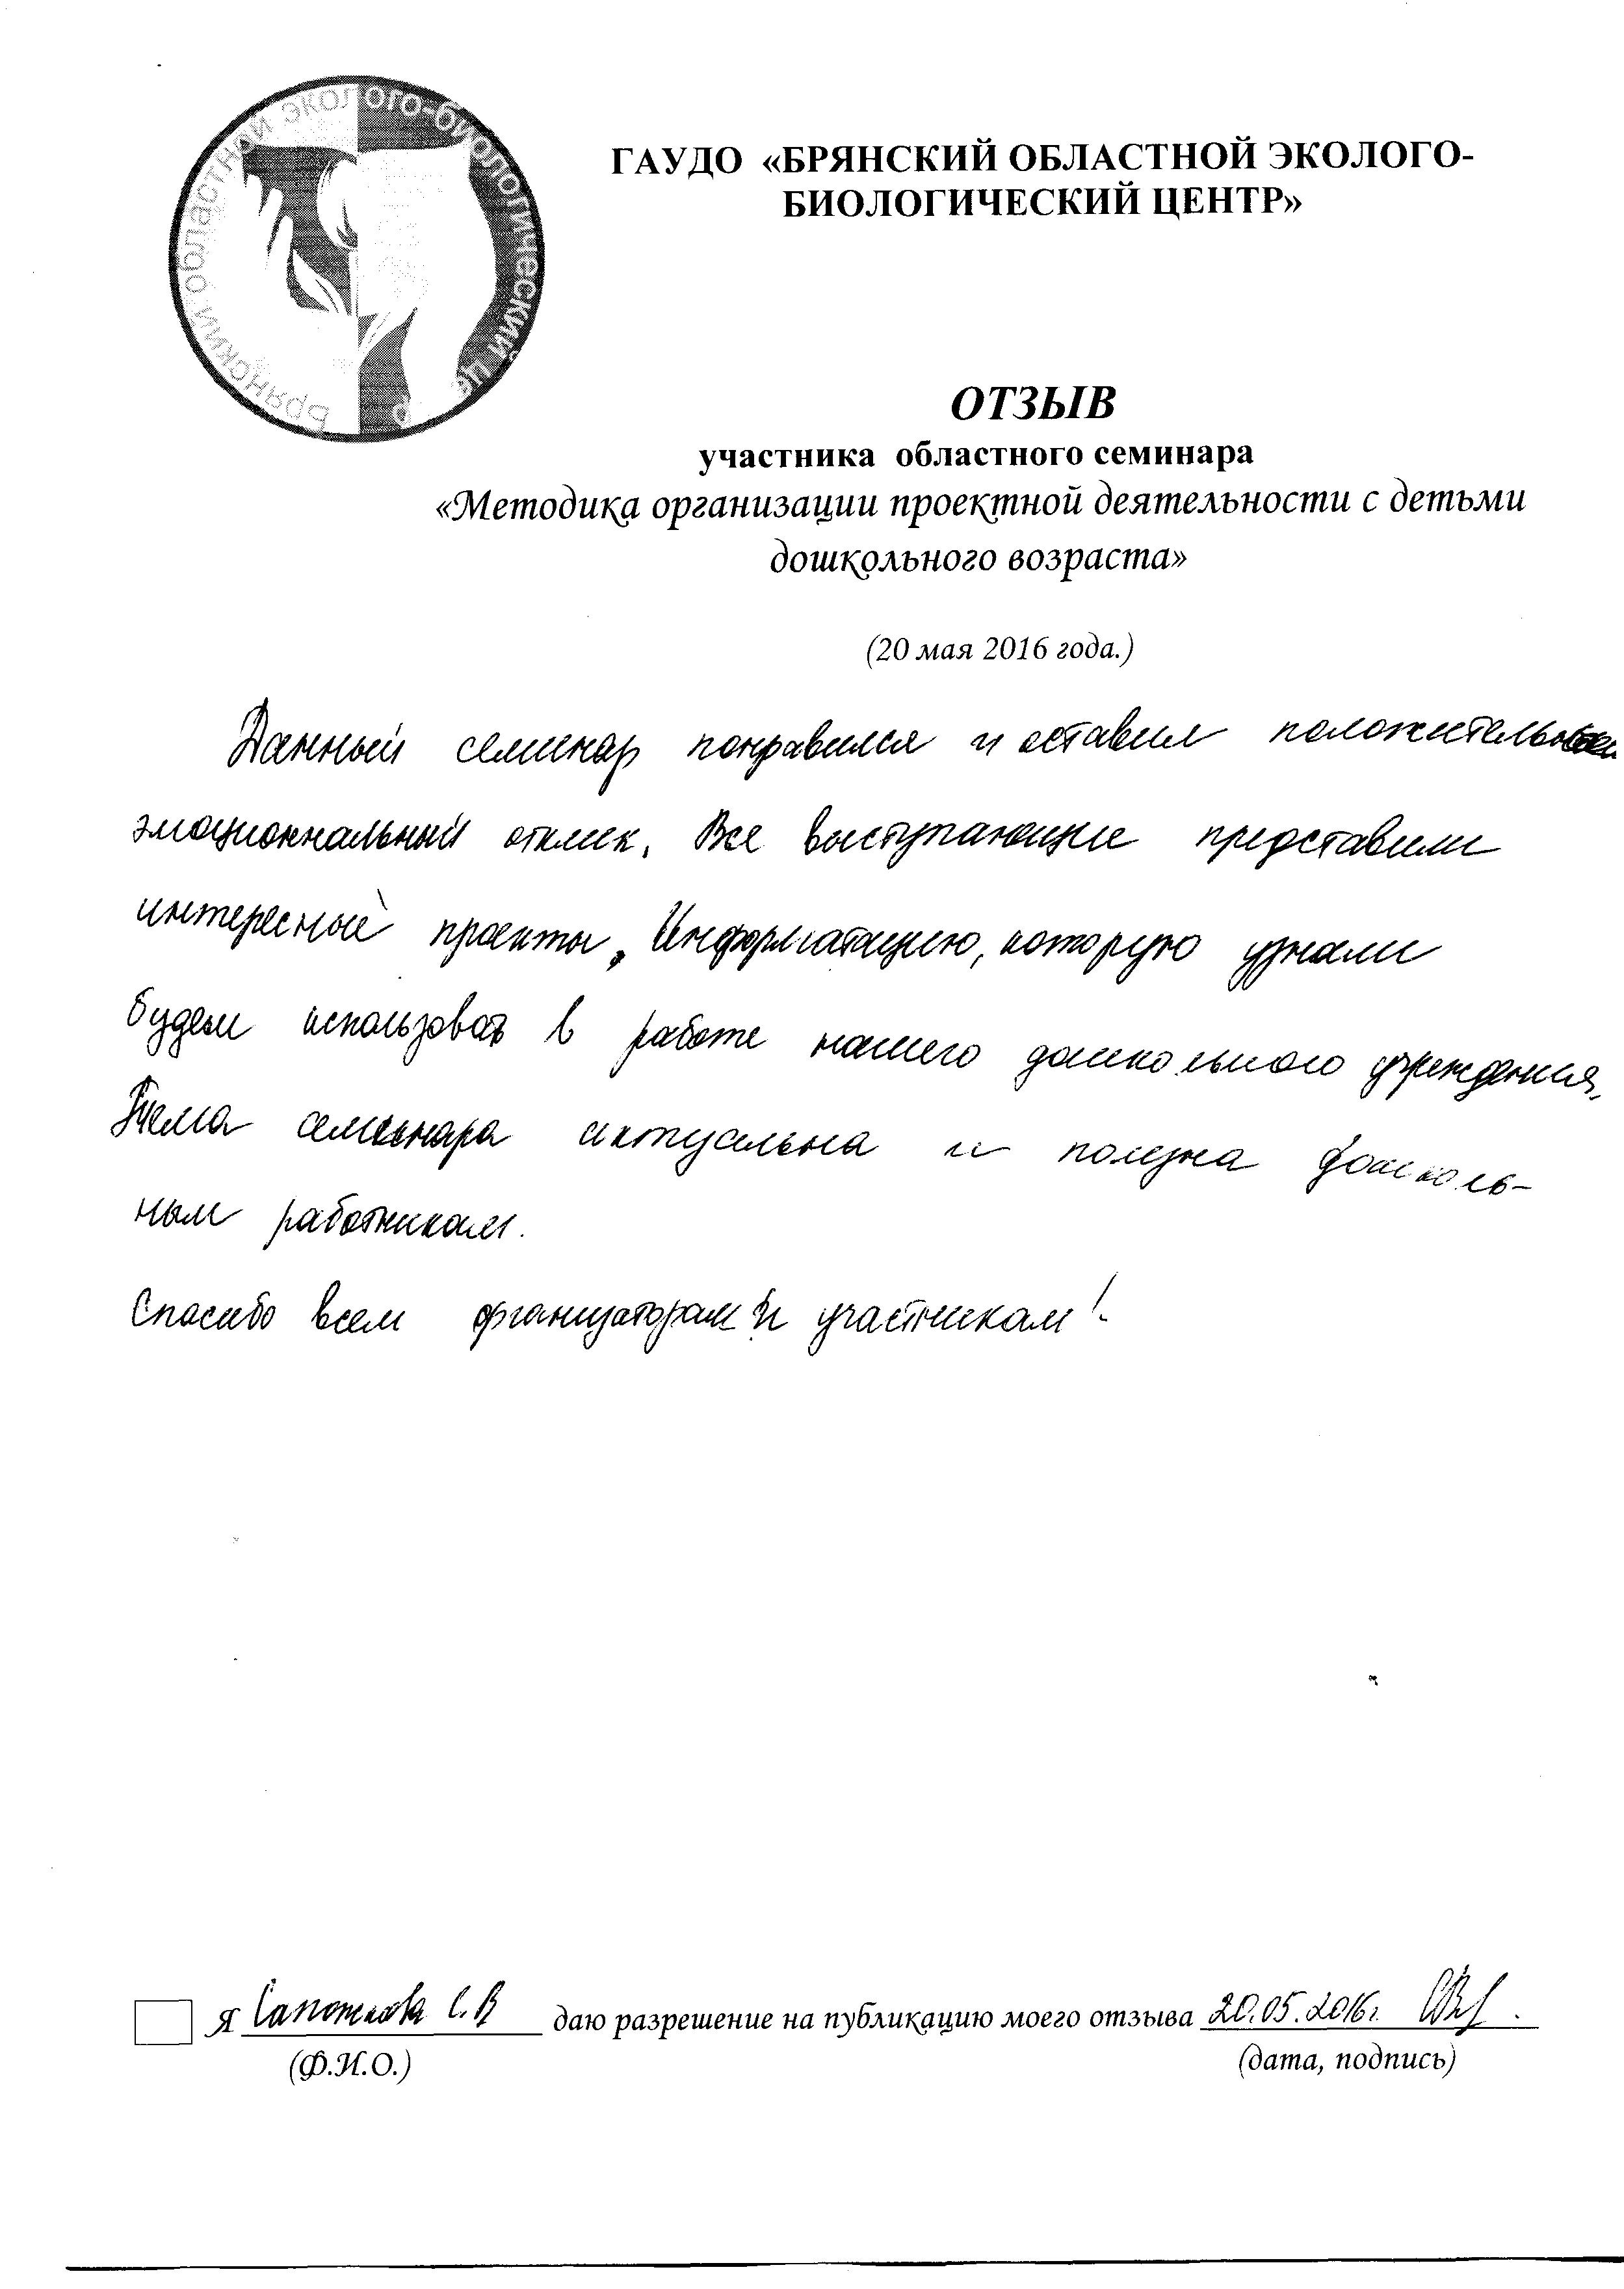 Брянский областной эколого-биологический це р
ГАУДО «БРЯНСКИЙ ОБЛАСТНОЙ ЭКОЛОГО-
БИОЛОГИЧЕСКИЙ ЦЕНТР»
ОТЗЫВ
участника областного семинара
«Методика организации проектной деятельности с детьми
дошкольного возраста»
(20 мая 2016 года.)
Данный семинар понравился и оставил положительный
эмоциональный отклик. Все выступающие представили
интересные проекты. Информатацию, которую узнали
будем использовать в работе нашего дошкольного учреждения.
Тема семинара актуальна и полезна дошколь-
ным работникам.
Спасибо всем организаторам и участникам!
я Сапожкова С.В даю разрешение на публикацию моего отзыва 20.05.2016г.
(Ф.И.О.) (дата, подпись)